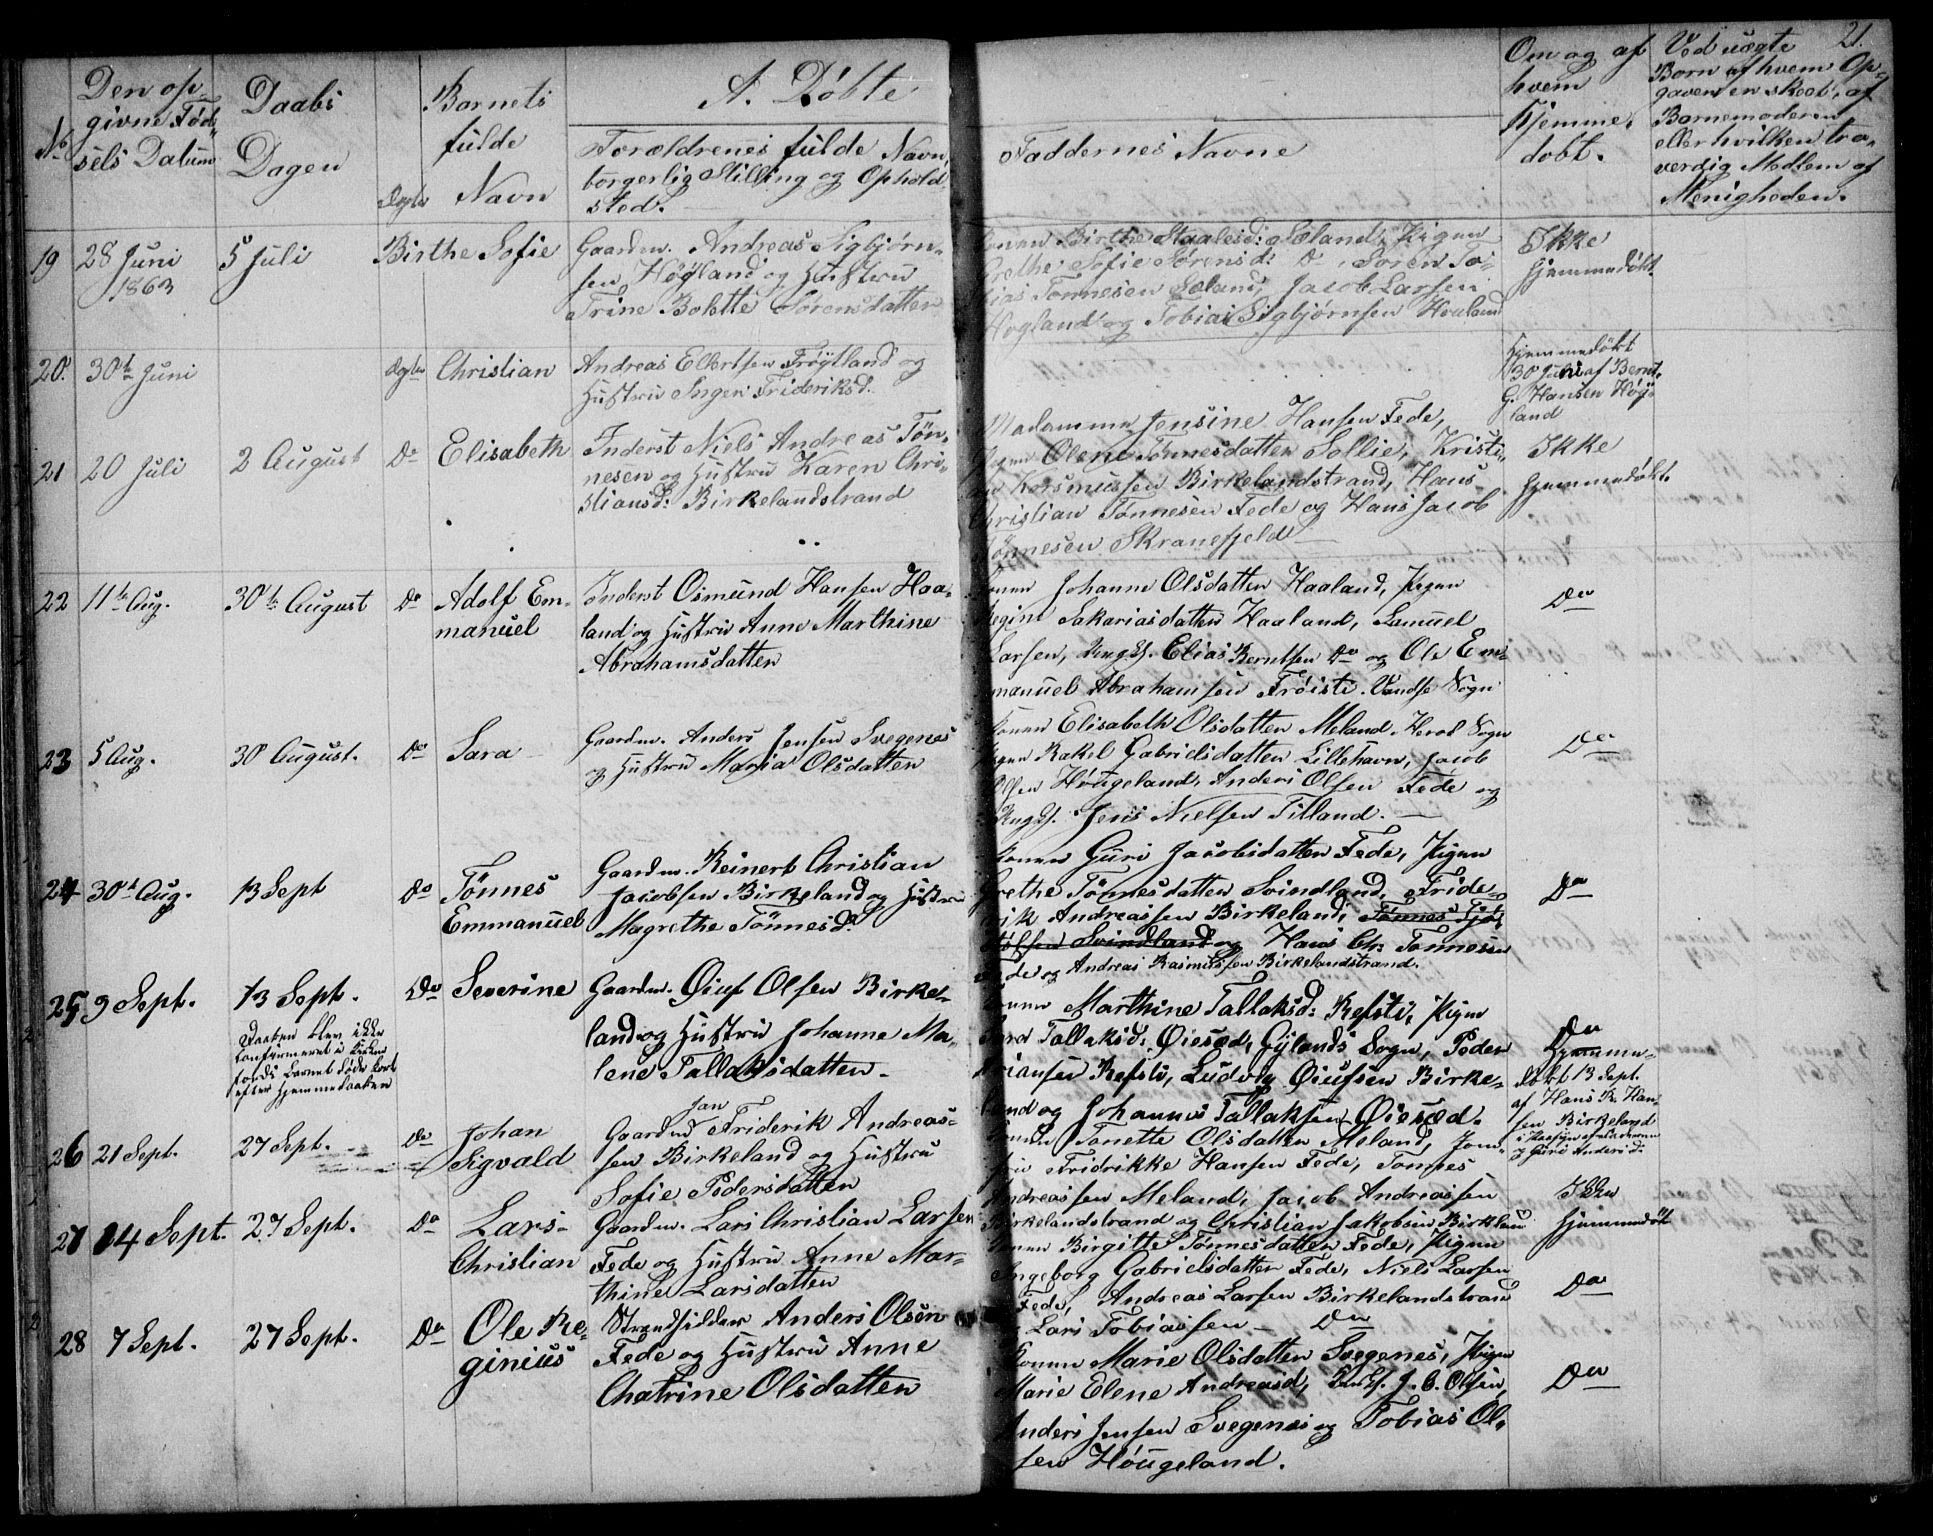 21.
No
Den op-
givne Fød-
sels Datum
Daabs
Dagen
Ægte
Barnets
fulde
Navn
A. Døbte
Forældrenes fulde Navn,
borgerlig Stilling og Ophold
sted.
Faddernes Navne
Om og af
hvem
Hjemme-
døbt.
Ved uægte
Born af hvem Op-
gaven er skeet, af
Barnemoderen
eller hvilken tro-
verdig Medlem af
Menigheden.
19
28 Juni
1863
5 Juli
Birthe Sofie
Gaardm. Andreas Sigbjørn-
sen Høyland og Hustru
Trine Bolette Sørensdatter
Konen Birthe Staalesd: Sæland, Pigen
Grethe Sofie Sørensd: Do, Søren To-
bias Tønnesen Sæland, Jacob Larsen
Høgland og Tobias Sigbjørnsen Houland
Ikke
hjemmedøbt.
20.
30te Juni
Ægte
Christian
Andreas Ellertsen Frøytland og
Hustru Inger Frideriksd.
Hjemmedøbt
30 Juni af Bernt
G. Hansen Høy-
land
21
20 Juli
2 August
Do
Elisabeth
Inderst Niels Andreas Tøn-
nesen og Hustru Karen Chri-
stiansd: Birkelandstrand
Madammen Jensine Hansen Fede,
Pigen Olene Tønnesdatter Sollie, Kristi-
an Rasmussen Birkelandstrand, Hans
Christian Tønnesen Fede og Hans Jacob
Tønnesen Skranefjeld
Ikke
hjemmedøbt.
22
11te Aug.
30te August
Do
Adolf Em-
manuel
Inderst Osmund Hansen Haa-
land og Hustru Anne Marthine
Abrahamsdatter
Konen Johanne Olsdatter Haaland, Pigen
Regine Sakariasdatter Haaland, Samuel
Larsen, Ungk. Elias Berntsen Do og Ole Em-
manuel Abrahamsen Frøisti. Vandse Sogn
Do
23
5 Aug.
30 August.
Do
Sara
Gaardm. Anders Jensen Svegenes
og Hustru Maria Olsdatter
Konen Elisabeth Olsdatter Meland, Herod Sogn
Pigen Rakel Gabrielsdatter Lillehavn, Jacob
Olsen Høugeland, Anders Olsen Fede og
Ungk. Jens Nielsen Tilland.
Do
24
30te Aug.
13 Sept
Do
Tønnes
Emmanuel
Gaardm. Reinert Christian
Jacobsen Birkeland og Hustru
Magrethe Tønnesd.
Konen Guri Jacobsdatter Fede, Pigen
Grethe Tønnesdatter Svindland, Fride-
rik Andreassen Birkeland, Tønnes Tjø-
stølsen Svindland og Hans Chr: Tønnessen
Fede og Andreas Rasmussen Birkelandstrand.
Do
25
9 Sept.
13 Sept.
Daaben blev ikke
confirmeret i Kirken
fordi Barnet døde kort
efter Hjemmedaaben
Do
Severine
Gaardm. Øiuf Olsen Birke-
land og Hustru Johanne Ma-
lene Tallaksdatter
Konen Marthine Tallaksd: Refsti, Pigen
Sara Tallaksd: Øiesæd, Gylands Sogn, Peder
Ariansen Refsti, Ludvig Øiufsen Birke-
land og Johannes Tallaksen Øiesæd.
Do
Hjemme-
døbt 13 Sept.
af Hans R. Han-
sen Birkeland
i Paasyn af Faderen
og Guri Andersd:
26
21 Sept.
27 Sept.
Do
Johan
Sigvald
Jan
Gaardmd Friderik Andreas-
sen Birkeland og Hustru
Sofie Pedersdatter
Konen Tonette Olsdatter Meland, Jom-
fru Fridrikke Hansen Fede, Tønnes
Andreassen Meland, Jacob Andreassen
Birkelandstrand og Christian Jakobsen Birkland
Ikke
hjemmedøbt
27
14 Sept.
27 Sept.
Do
Lars
Christian
Gaardm. Lars Christian Larsen
Fede og Hustru Anne Mar-
thine Larsdatter
Konen Birgitte Tønnesdatter Fede, Pigen
Ingeborg Gabrielsdatter Fede, Niels Larsen
Fede, Andreas Larsen Birkelandstrand
og Lars Tobiassen Do
Do
28
7 Sept.
27 Sept.
Do
Ole Re-
ginius
Strandsidder Anders Olsen
Fede og Hustru Anne
Chatrine Olsdatter
Konen Marie Olsdatter Svegenes, Pigen
Marie Elene Andreasd, Ungk. J. C. Olsen,
Anders Jensen Svegenes og Tobias Ol-
sen Høugeland.
Do